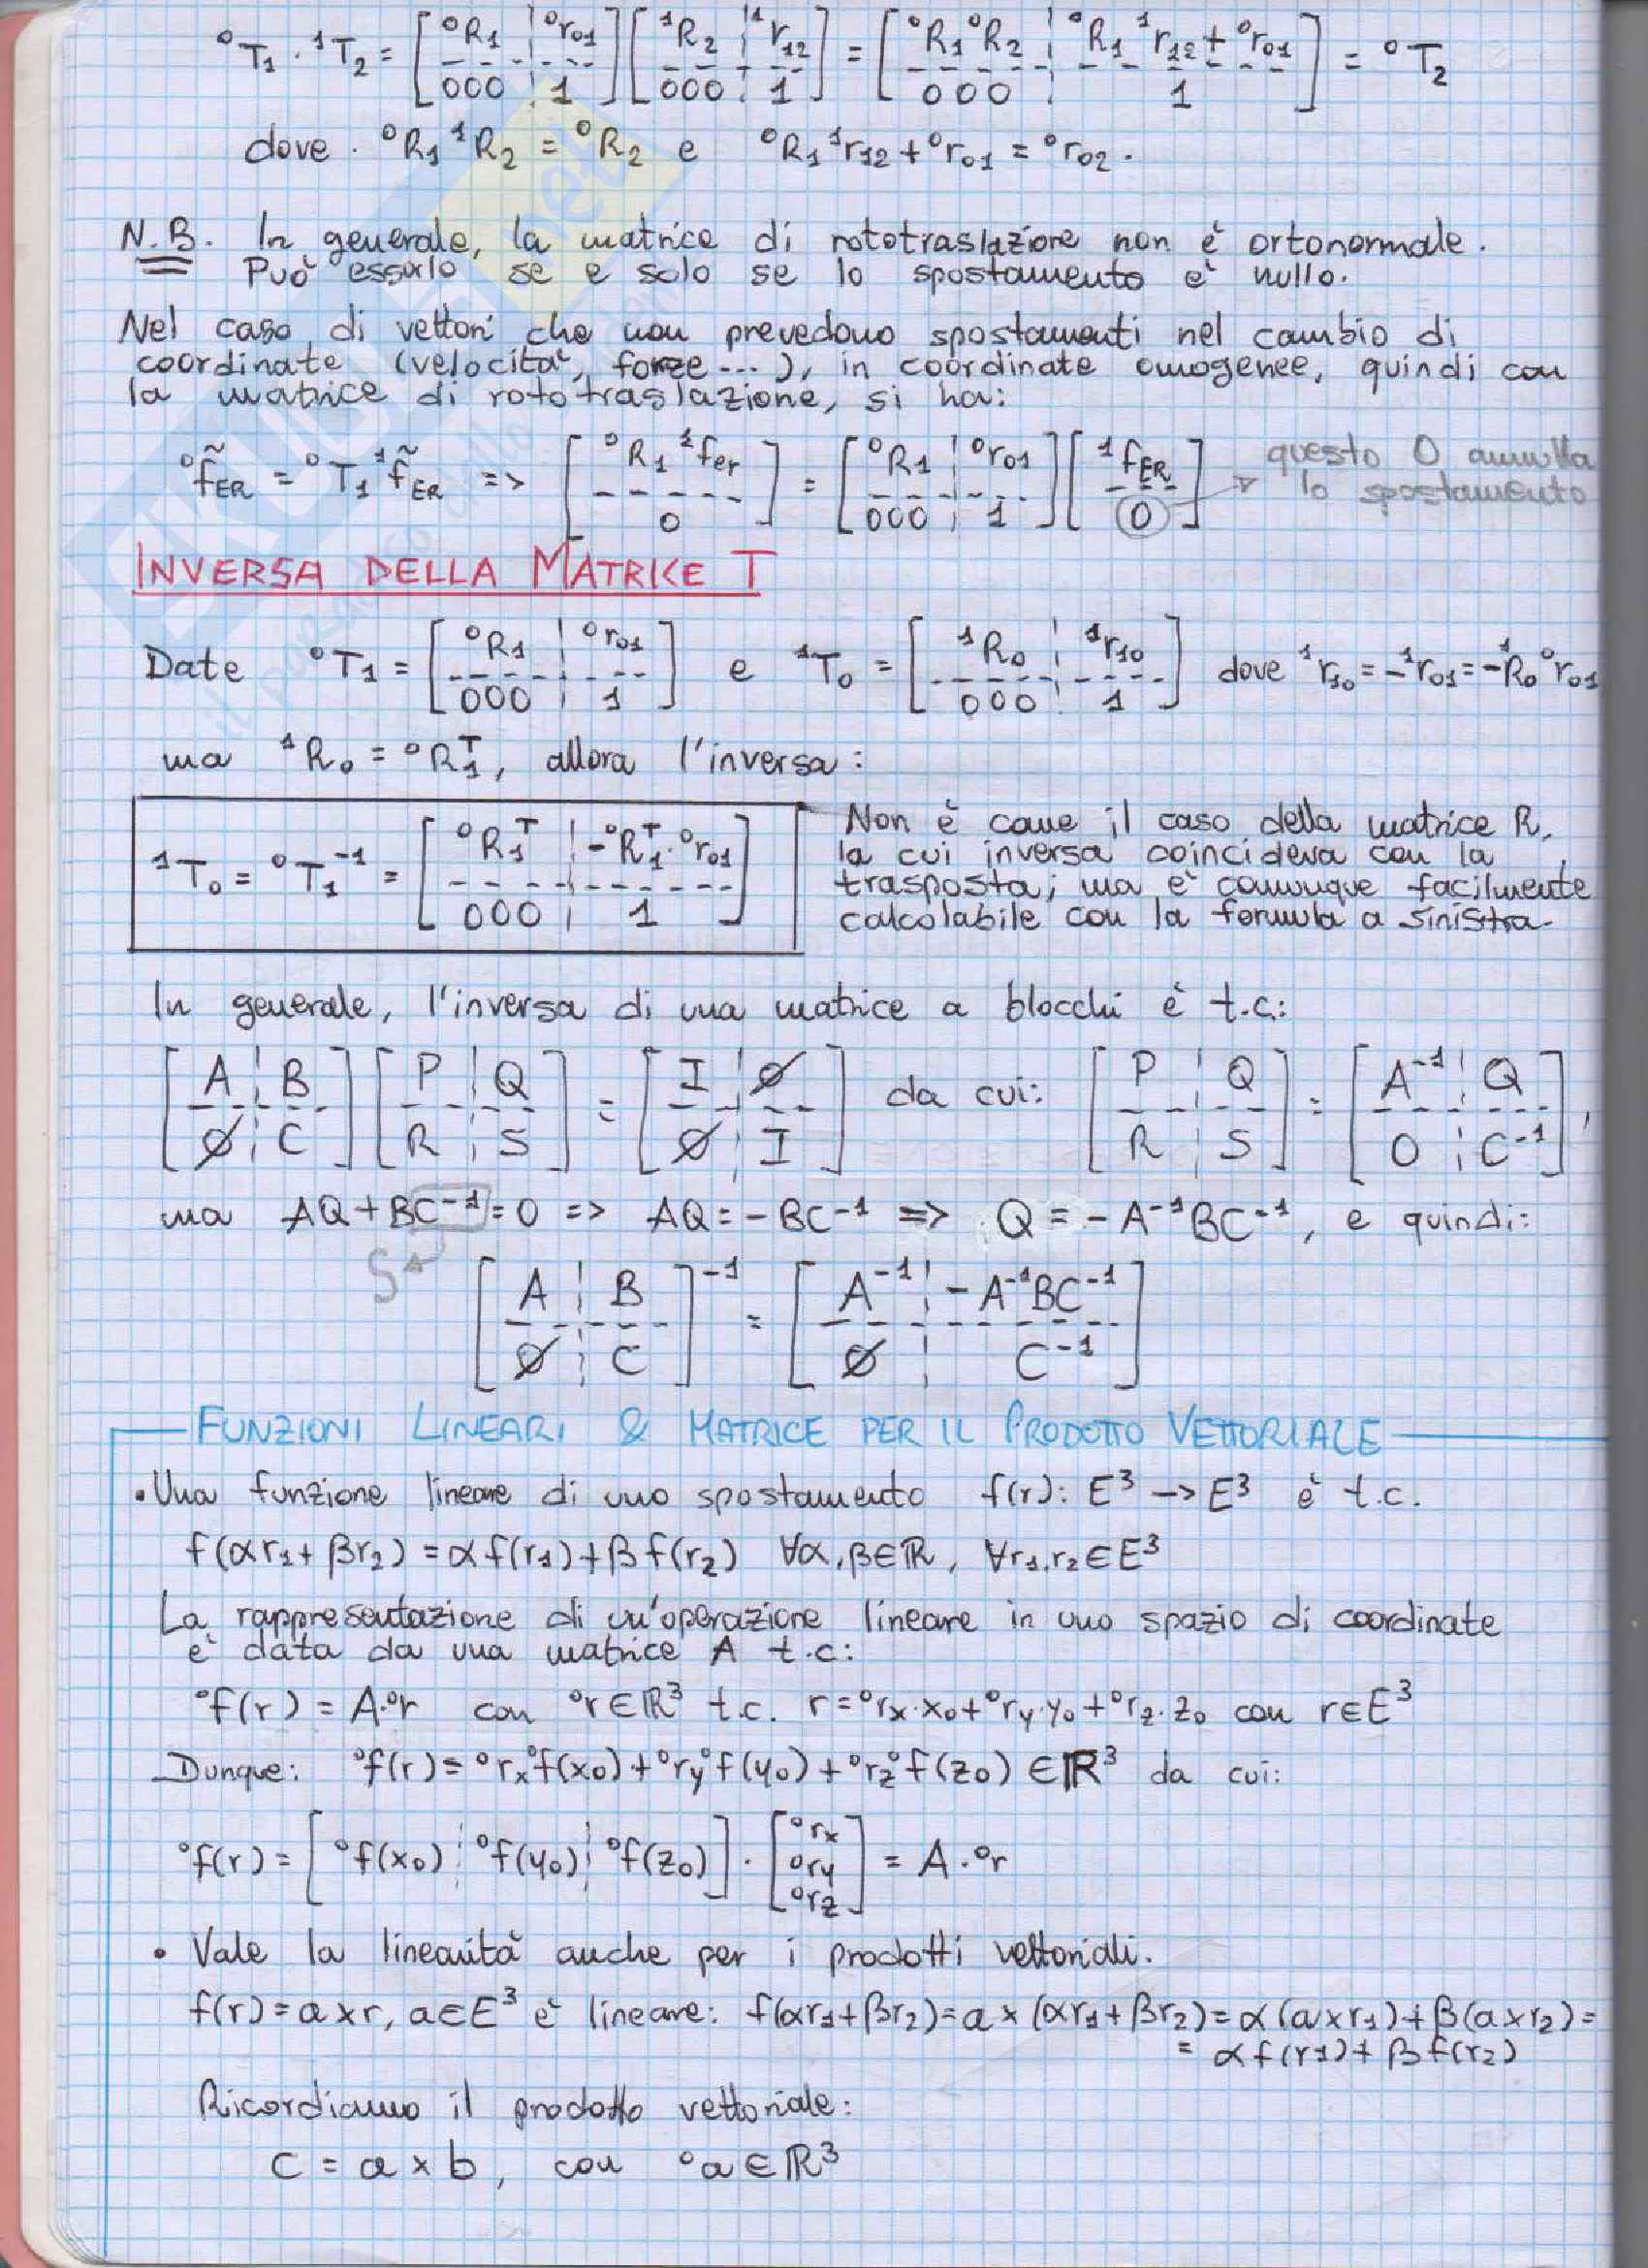 ⁰T₁ · ¹T₂ = [⁰R₁ ¦ ⁰r₀₁ ; 000 ¦ 1] [¹R₂ ¦ ¹r₁₂ ; 000 ¦ 1] = [⁰R₁⁰R₂ ¦ ⁰R₁¹r₁₂ + ⁰r₀₁ ; 000 ¦ 1] = ⁰T₂
dove · ⁰R₁ ¹R₂ = ⁰R₂ e ⁰R₁ ¹r₁₂ + ⁰r₀₁ = ⁰r₀₂.
N.B. In generale, la matrice di rototraslazione non è ortonormale.
Può esserlo se e solo se lo spostamento è nullo.
Nel caso di vettori che non prevedono spostamenti nel cambio di
coordinate (velocità, forze...), in coordinate omogenee, quindi con
la matrice di rototraslazione, si ha:
⁰f̃ER = ⁰T₁ ¹f̃ER => [⁰R₁ ¹fer ; 0] = [⁰R₁ ¦ ⁰r₀₁ ; 000 ¦ 1] [¹fER ; 0] questo 0 annulla
lo spostamento
INVERSA DELLA MATRICE T
Date ⁰T₁ = [⁰R₁ ¦ ⁰r₀₁ ; 000 ¦ 1] e ¹T₀ = [¹R₀ ¦ ¹r₁₀ ; 000 ¦ 1] dove ¹r₁₀ = -¹r₀₁ = -¹R₀ ⁰r₀₁
ma ¹R₀ = ⁰R₁ᵀ, allora l'inversa:
¹T₀ = ⁰T₁⁻¹ = [⁰R₁ᵀ ¦ -⁰R₁ᵀ·⁰r₀₁ ; 000 ¦ 1]
Non è come il caso della matrice R,
la cui inversa coincideva con la
trasposta; ma è comunque facilmente
calcolabile con la formula a sinistra.
In generale, l'inversa di una matrice a blocchi è t.c.:
[A ¦ B ; ∅ ¦ C] [P ¦ Q ; R ¦ S] = [I ¦ ∅ ; ∅ ¦ I] da cui: [P ¦ Q ; R ¦ S] = [A⁻¹ ¦ Q ; 0 ¦ C⁻¹],
ma AQ + BC⁻¹ = 0 => AQ = -BC⁻¹ => Q = -A⁻¹BC⁻¹, e quindi:
S
[A ¦ B ; ∅ ¦ C]⁻¹ = [A⁻¹ ¦ -A⁻¹BC⁻¹ ; ∅ ¦ C⁻¹]
FUNZIONI LINEARI & MATRICE PER IL PRODOTTO VETTORIALE
• Una funzione lineare di uno spostamento f(r): E³ -> E³ è t.c.
f(αr₁ + βr₂) = αf(r₁) + βf(r₂) ∀α,β∈ℝ, ∀r₁,r₂∈E³
La rappresentazione di un'operazione lineare in uno spazio di coordinate
è data da una matrice A t.c:
⁰f(r) = A·⁰r con ⁰r∈ℝ³ t.c. r = ⁰rx·x₀ + ⁰ry·y₀ + ⁰rz·z₀ con r∈E³
Dunque: ⁰f(r) = ⁰rx⁰f(x₀) + ⁰ry⁰f(y₀) + ⁰rz⁰f(z₀) ∈ℝ³ da cui:
⁰f(r) = [⁰f(x₀) ¦ ⁰f(y₀) ¦ ⁰f(z₀)] · [⁰rx ; ⁰ry ; ⁰rz] = A·⁰r
• Vale la linearità anche per i prodotti vettoriali.
f(r) = a×r, a∈E³ è lineare: f(αr₁+βr₂) = a×(αr₁+βr₂) = α(a×r₁)+β(a×r₂) =
= αf(r₁) + βf(r₂)
Ricordiamo il prodotto vettoriale:
c = a×b, con ⁰a∈ℝ³